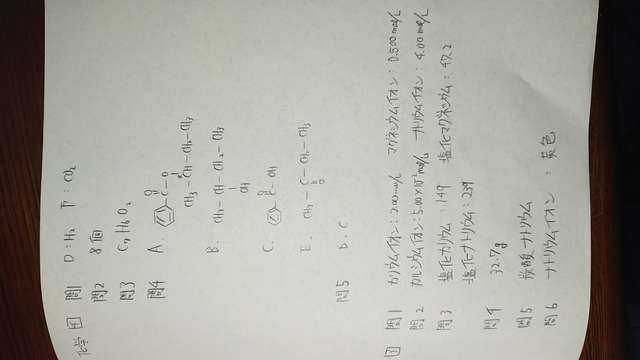 化学 4 問1 D:H2 F:CO2
問2 8個
問3 C7H6O2
問4 A O C-O CH3-CH-CH2-CH3
B. CH3-CH-CH2-CH3 OH
C. O C-OH
E. CH3-C-CH2-CH3 O
問5 b:C
問1 カリウムイオン:2.00mol/L マグネシウムイオン:0.500mol/L
問2 カルシウムイオン:5.00×10 mol/L ナトリウムイオン:4.00mol/L
問3 塩化カリウム:149 塩化マグネシウム:47.2
塩化ナトリウム:239
問4 32.7g
問5 炭酸ナトリウム
問6 ナトリウムイオン:黄色